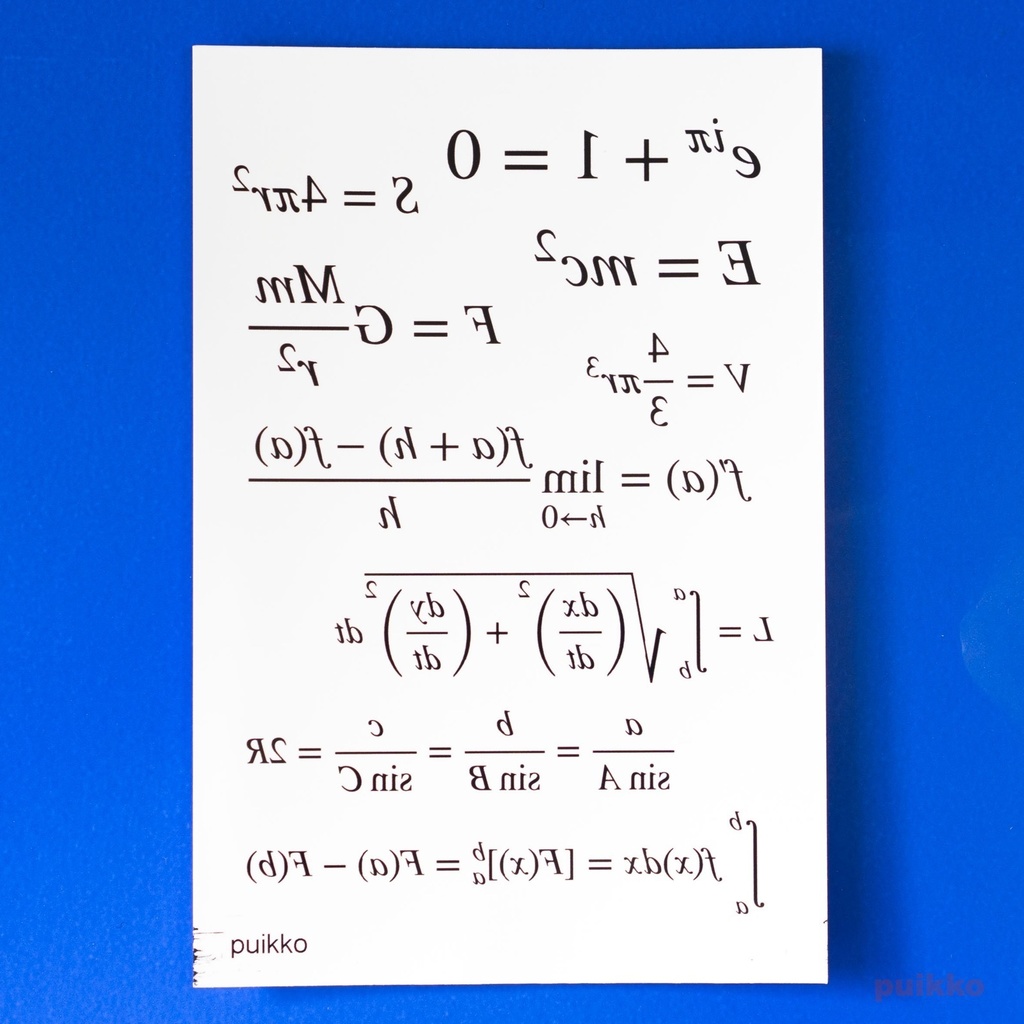 e^{iπ} + 1 = 0
S = 4πr²
E = mc²
F = G\frac{Mm}{r²}
V = \frac{4}{3}πr³
f'(a) = \lim_{h→0} \frac{f(a + h) − f(a)}{h}
L = ∫_b^a √((\frac{dx}{dt})² + (\frac{dy}{dt})²) dt
\frac{a}{sin A} = \frac{b}{sin B} = \frac{c}{sin C} = 2R
∫_a^b f(x)dx = [F(x)]_a^b = F(a) − F(b)
puikko
puikko